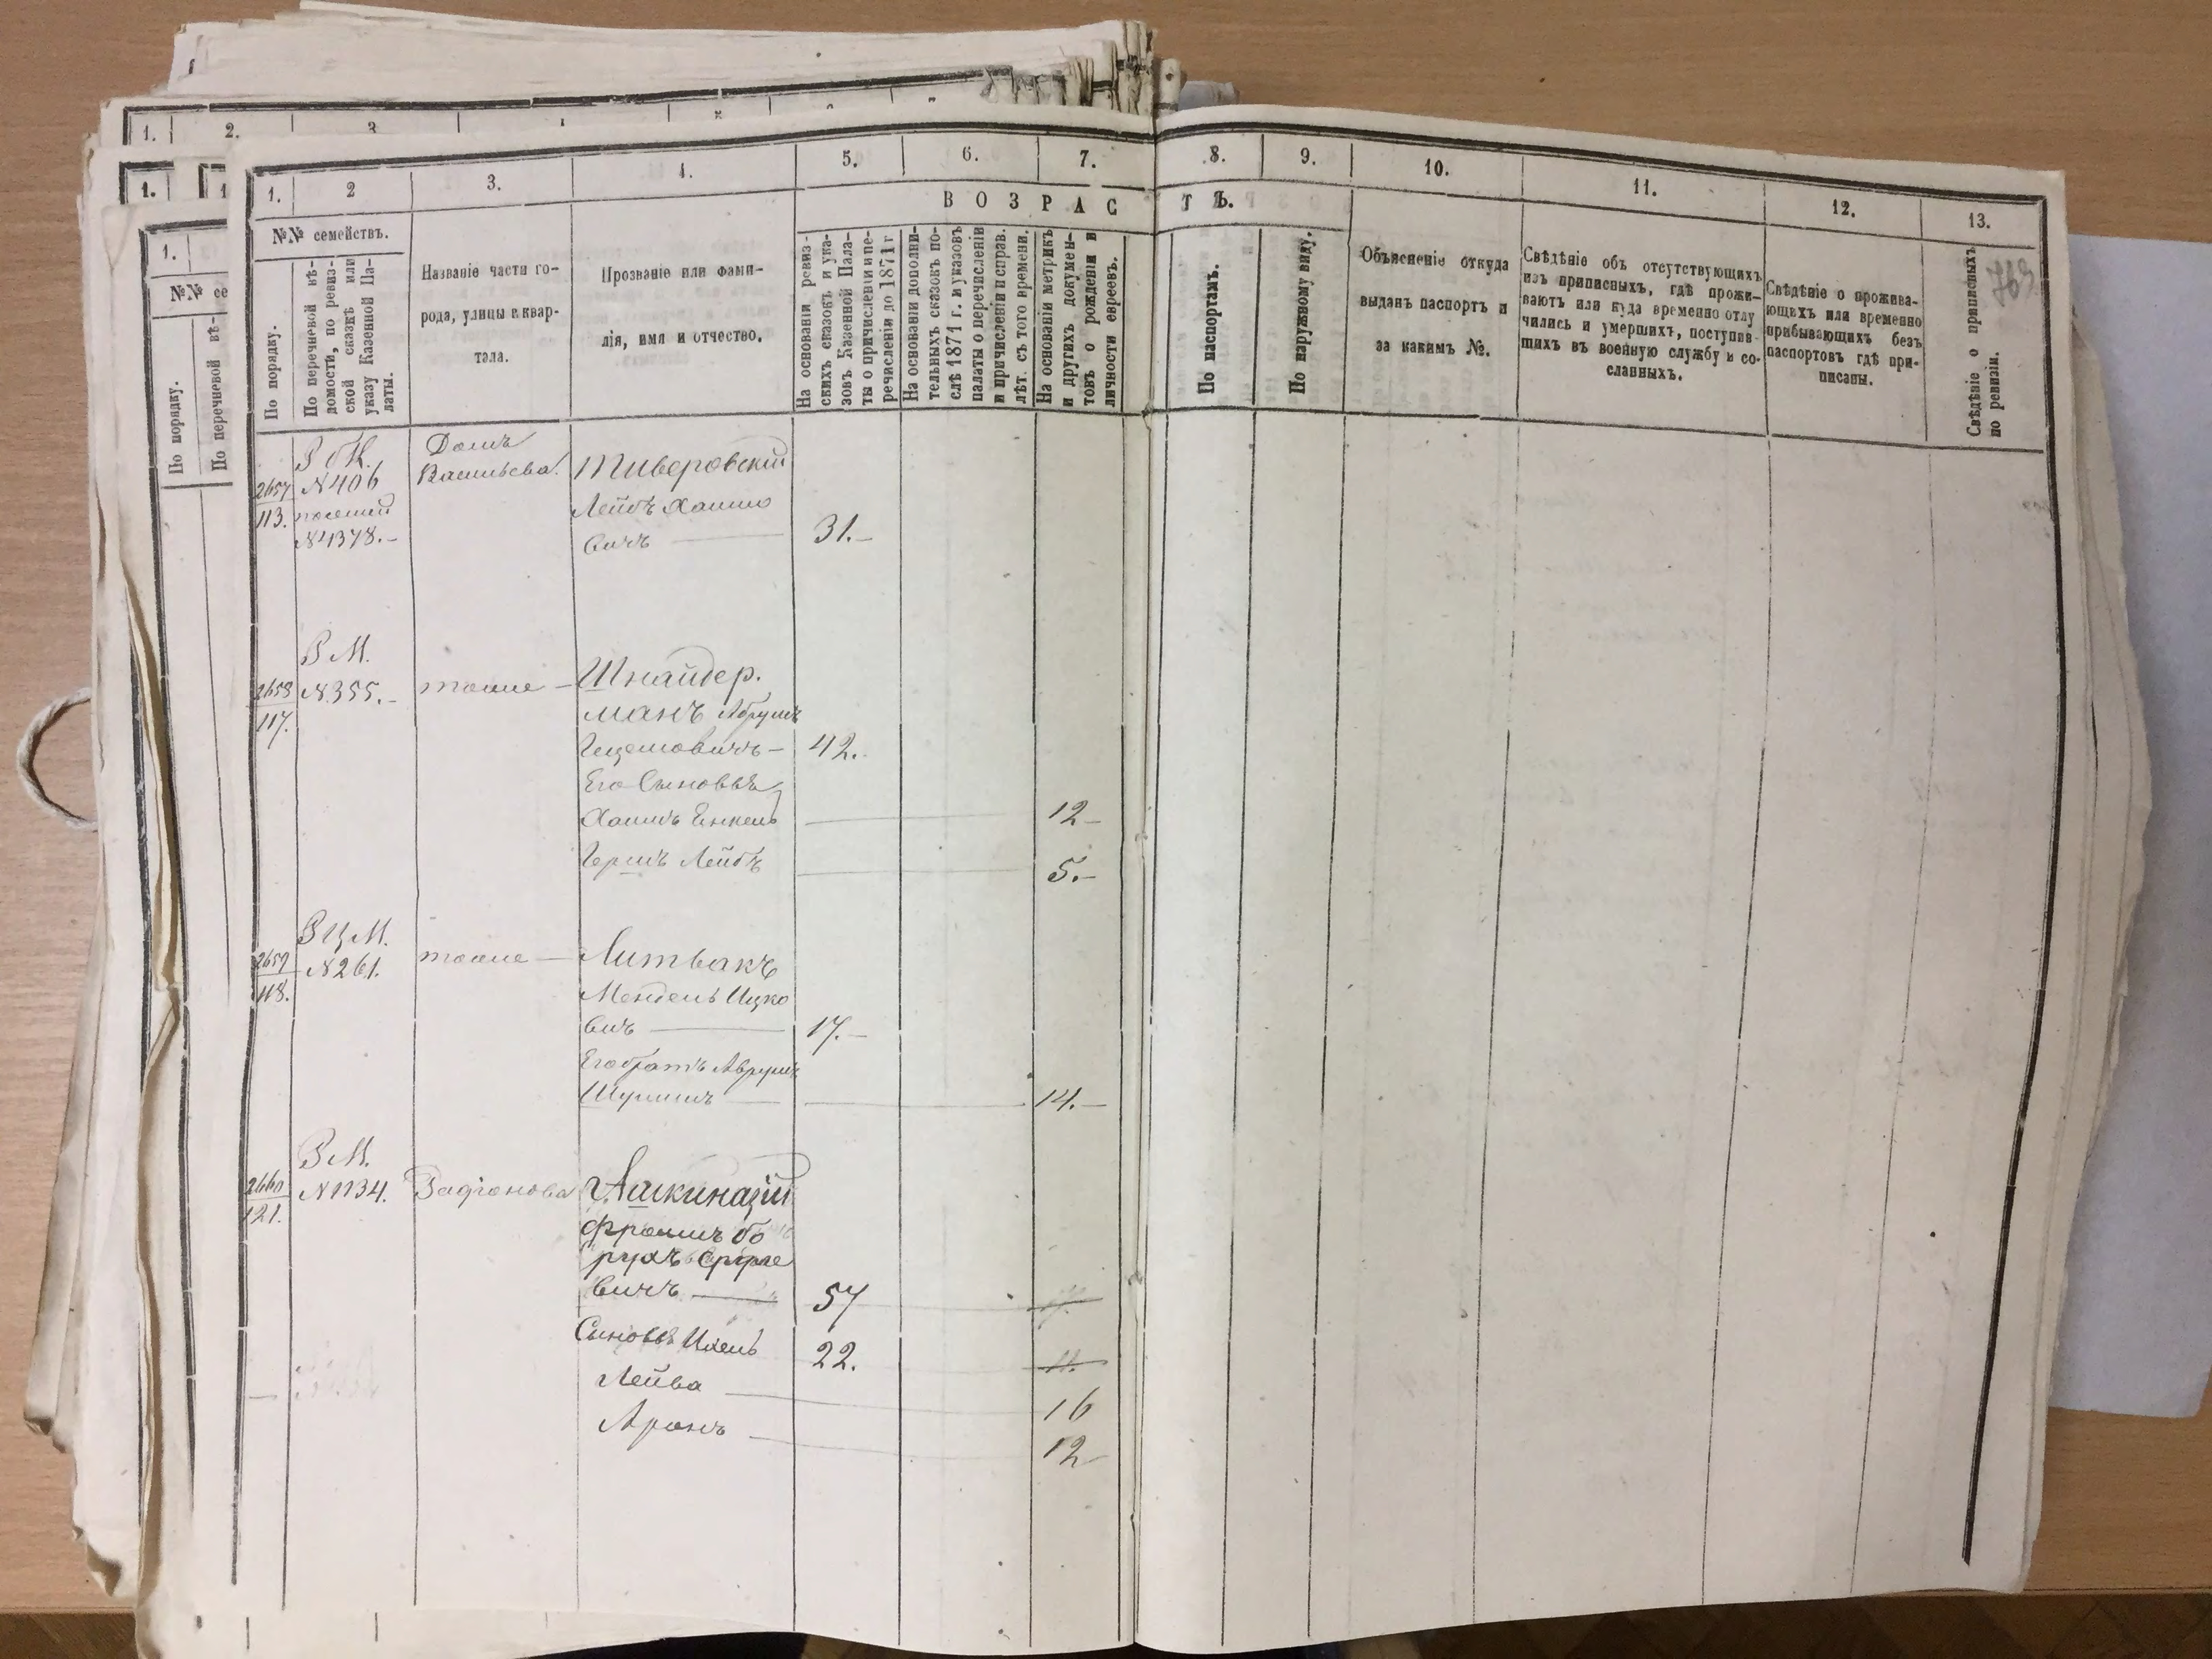 1.
2.
3
1.
1.
1.
№№ се
По порядку.
По перечневой вѣ-
1.
2
3.
4.
5.
6.
7.
8.
9.
10.
11.
12.
13.
ВОЗРАС
ТЪ.
№№ семействъ.
По порядку.
По перечневой вѣ-
домости, по ревиз-
ской сказкѣ или
указу Казенной Па-
латы.
Названіе части го-
рода, улицы и квар-
тала.
Прозваніе или фами-
лія, имя и отчество.
На основаніи ревиз-
скихъ сказокъ и ука-
зовъ Казенной Пала-
ты о причисленіи и пе-
речисленіи до 1871 г
На основаніи дополни-
тельныхъ сказокъ по-
слѣ 1871 г. и указовъ
палаты о перечисленіи
и причисленіи и справ.
лѣт. съ того времени.
На основаніи метрикъ
и другихъ докумен-
товъ о рожденіи и
личности евреевъ.
По паспортамъ.
По наружному виду.
Объясненіе откуда
выданъ паспортъ и
за какимъ №.
Свѣдѣніе объ отсутствующихъ
изъ приписныхъ, гдѣ прожи-
ваютъ или куда временно отлу
чились и умершихъ, поступив-
щихъ въ военную службу и со-
сланныхъ.
Свѣдѣніе о прожива-
ющихъ или временно
прибывающихъ безъ
паспортовъ гдѣ при-
писаны.
Свѣдѣніе о приписныхъ
по ревизіи.
763
2657
113.
№406
№1378.-
Домъ
Васильева.
Тиверовскій
Лейбъ Хаимо
вичъ
31.-
2658
117.
В М.
№355.-
тоже
Шнайдер.
манъ Абрумъ
Гецелевичъ
42.
Его Сыновья
Хаимъ Енкель
12-
Гершъ Лейбъ
5.-
2659
118.
В Ц М.
№261.
тоже
Литвакъ
Мендель Ицко
вичъ
17.-
Его братъ Аврумъ
Шулимъ
14.-
2660
121.
В М.
№1134.
Радіонова
Ашкиназій
Фроимъ Бо
рухъ Сруле
вичъ
57
Сыновья Ихель
22.
11.
Лейба
16
Аронъ
12